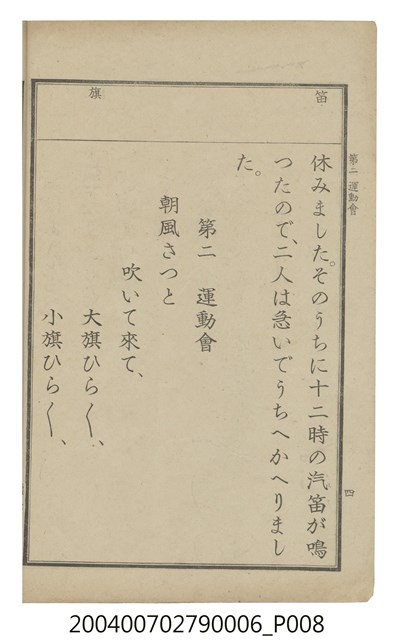 笛
旗
第二 運動會
休みました。そのうちに十二時の汽笛が鳴
つたので、二人は急いでうちへかへりまし
た。
第二 運動會
朝風さつと
吹いて來て、
大旗ひら〱、
小旗ひら〱、
四
200400702790006_P008